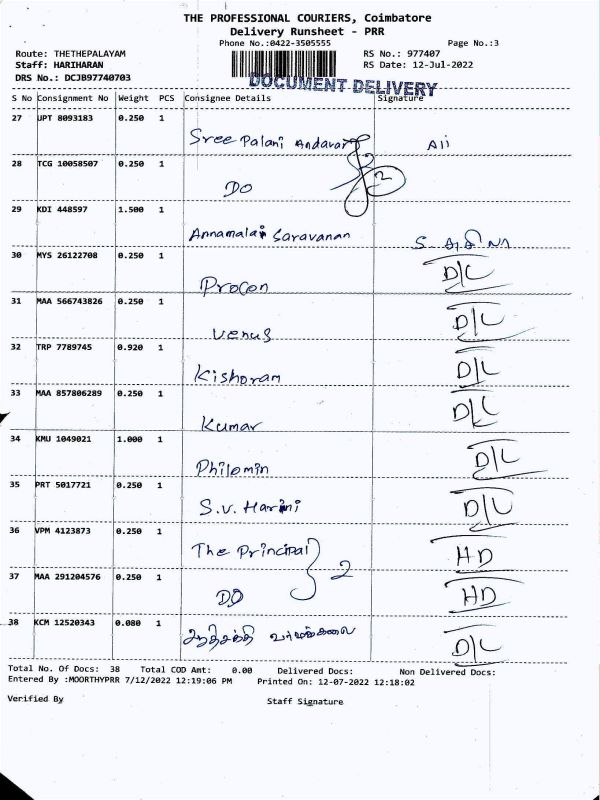 THE PROFESSIONAL COURIERS, Coimbatore
Delivery Runsheet - PRR
Phone No.:0422-3505555 Page No.:3
Route: THETHEPALAYAM RS No.: 977407
Staff: HARIHARAN RS Date: 12-Jul-2022
DRS No.: DCJB97740703 DOCUMENT DELIVERY
S No Consignment No Weight PCS Consignee Details Signature
27 UPT 8093183 0.250 1
Sree Palani Andavar
28 TCG 10058507 0.250 1
DO 2
29 KDI 448597 1.500 1
Annamalai Saravanan
30 MYS 26122708 0.250 1
Procon D/L
31 MAA 566743826 0.250 1
Venus D/L
32 TRP 7789745 0.920 1
Kishoram D/L
33 MAA 857806289 0.250 1
Kumar D/L
34 KMU 1049021 1.000 1
Philomin D/L
35 PRT 5017721 0.250 1
S.V. Harini D/L
36 VPM 4123873 0.250 1
The Principal HD
37 MAA 291204576 0.250 1
DO 2 HD
38 KCM 12520343 0.080 1
D/L
Total No. Of Docs: 38 Total COD Amt: 0.00 Delivered Docs: Non Delivered Docs:
Entered By :MOORTHYPRR 7/12/2022 12:19:06 PM Printed On: 12-07-2022 12:18:02
Verified By Staff Signature